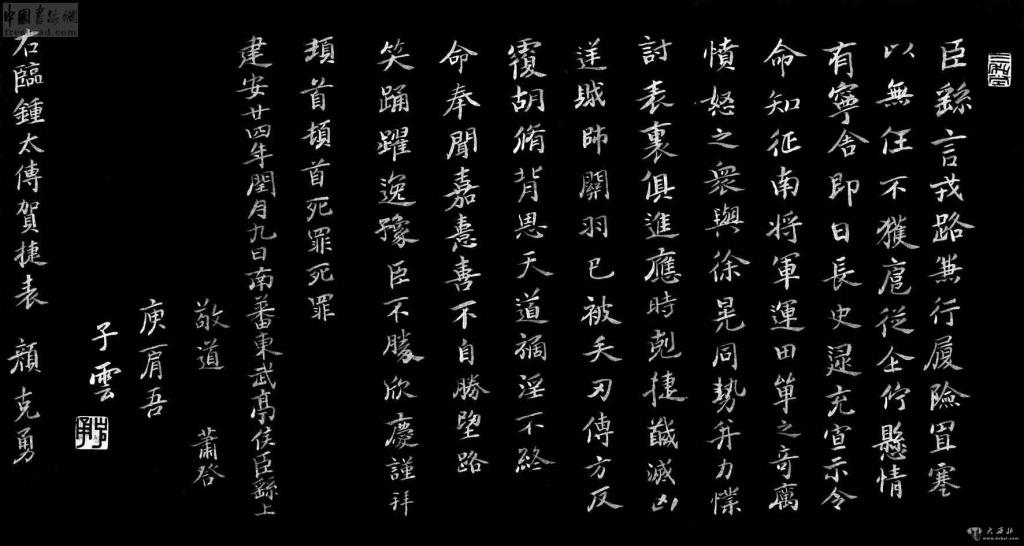 臣繇言戎路兼行履險冒寒
以無任不獲扈從企佇懸情
有寧舍即日長史逯充宣示令
命知征南将軍運田單之奇厲
憤怒之衆與徐晃同勢并力撲
討表裏俱進應時剋捷馘滅凶
逆賊帥關羽已被矢刃傅方反
覆胡脩背恩天道禍淫不終
命奉聞嘉憙喜不自勝望路
笑踊躍逸豫臣不勝欣慶謹拜
頓首頓首死罪死罪
建安廿四年閏月九日南蕃東武亭侯臣繇上
敬道 蕭啓
庾肩吾
子雲
右臨鍾太傅賀捷表 顏克勇
中国書法網
大海北
www.dahai.com